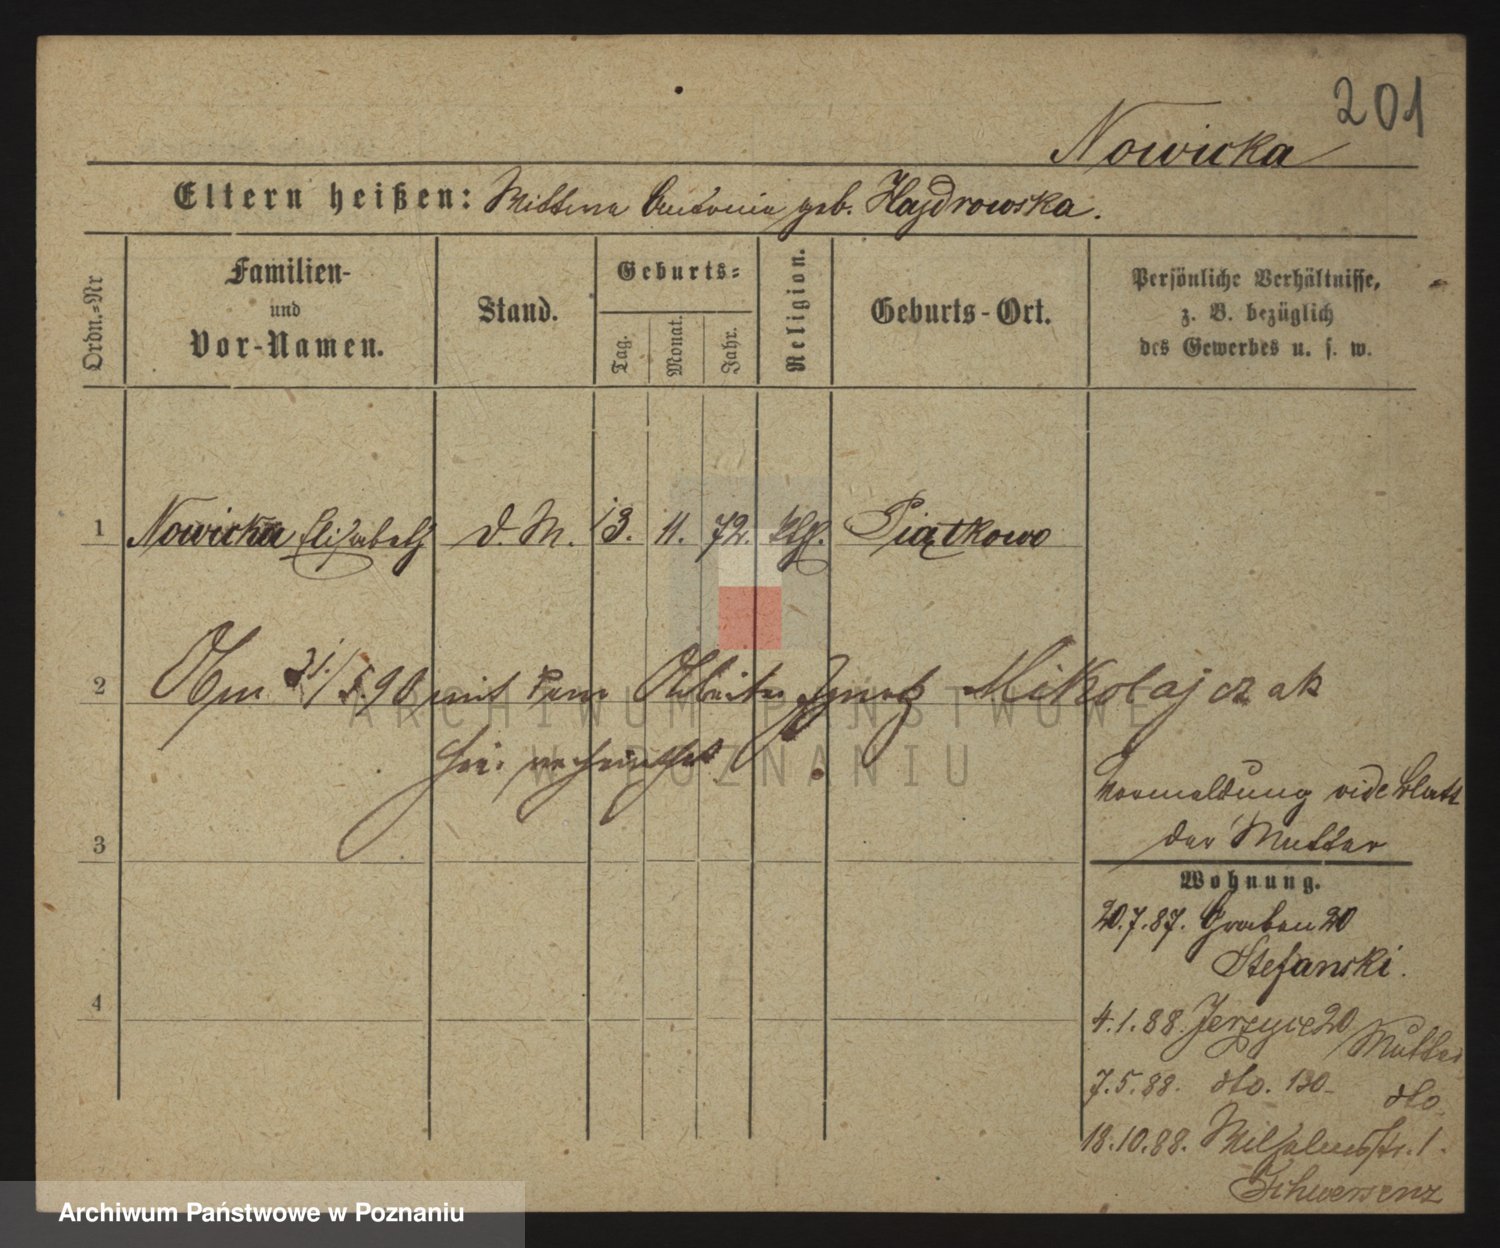 201
Nowicka
Eltern heißen: Wittwe Antonie geb. Hajdrowska.
Ordn.-Nr
Familien-
und
Vor-Namen.
Stand.
Geburts-
Tag.
Monat.
Jahr.
Religion.
Geburts-Ort.
Persönliche Verhältnisse,
z. B. bezüglich
des Gewerbes u. s. w.
1 Nowicka Elisabeth D. M. 13. 11. 72. kth. Piątkowo
2 Am 31/5.90 mit dem Arbeiter Ignatz Mikolajczak
hier verheirathet
Vormeldung vide Blatt
der Mutter
3
Wohnung.
20.7.87. Graben 20
Stefanski.
4
4.1.88. Jerzyce 20 Mutter
7.5.88. dto. 130- dto
18.10.88. Wilhelmstr. 1.
Schwersenz
ARCHIWUM PAŃSTWOWE
W POZNANIU
Archiwum Państwowe w Poznaniu